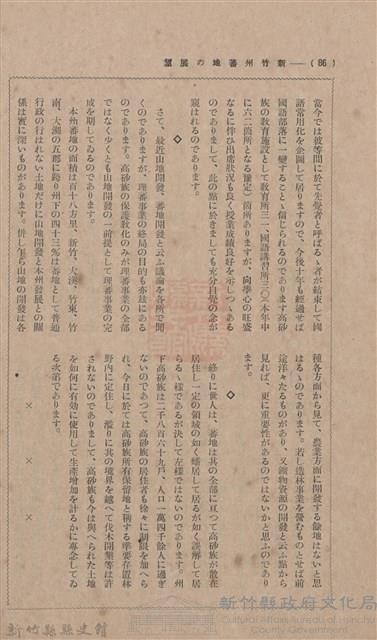 (86)——新竹州蕃地の展望
當今では彼等間に於て先覺者と呼ばるゝ者が結束して國
語常用化を企圖して居りますので、今後十年も經過せば
國語部落に一變することゝ信じられるのであります高砂
族の教育施設として教育所三一、國語講習所三〇(本年中
に六二箇所となる豫定)箇所ありますが、向學心の旺盛
なるに伴ひ出席狀況も良く授業成績良好を示しつゝある
のでありまして、此の點に於きましても充分自覺の念が
窺はれるのであります。
◇
さて、最近山地開發、蕃地開發と云ふ議論を各所で聞
くのでありますが、理蕃事業の終局の目的も亦茲にある
のであります。高砂族の保護教化のみが理蕃事業の全部
ではなく少くとも山地開發の一前提として理蕃事業の完
成を期してゐるのであります。
本州蕃地の面積は百十八方里、新竹、大溪、竹東、竹
南、大湖の五郡に跨り州下の四十三%は蕃地として普通
行政の行はれない土地だけに山地開發と本州發展との關
係は實に深いものがあります。併し乍ら山地の開發は各
種各方面から見て、農業方面に開發する餘地はないと思
はるゝのであります。若し造林事業を營むものとせば前
途洋々たるものがあり、又鑛物資源の開發と云ふ點から
見れば、更に重要性があるのではないかと思ふのであり
ます。
◇
終りに世人は、蕃地は其の全部に亘つて高砂族が散在
居住し一定の領域の如く蟠居して居るが如く誤解して居
らるゝ樣であるが決して左樣ではないのであります。州
下高砂族は二千八百六十九戶、人口一萬四千餘人に過ぎ
ないのであつて、高砂族の居住者も徐々に制限を加へら
れ、今日に於ては高砂族所有保留地と稱する準要存置林
野內に定住し、濫りに其の境界を越へて伐木開墾等は許
されないのでありまして、高砂族も今は與へられた土地
を如何に有効に使用して生產增加を計るかに專念してゐ
る次第であります。
× ×
×
新竹縣縣史館
新竹縣政府文化局
Cultural Affairs Bureau of Hsinchu
County Government